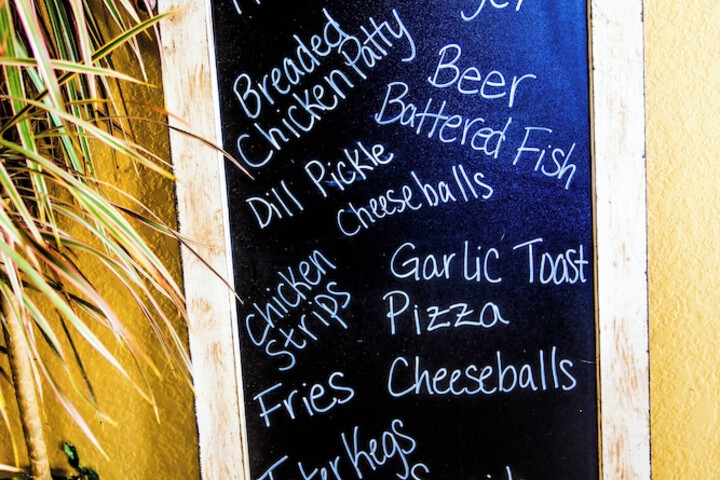 Breaded
Chicken Patty
Beer
Battered Fish
Dill Pickle
Cheeseballs
Chicken
Strips
Garlic Toast
Pizza
Cheeseballs
Fries
Kegs